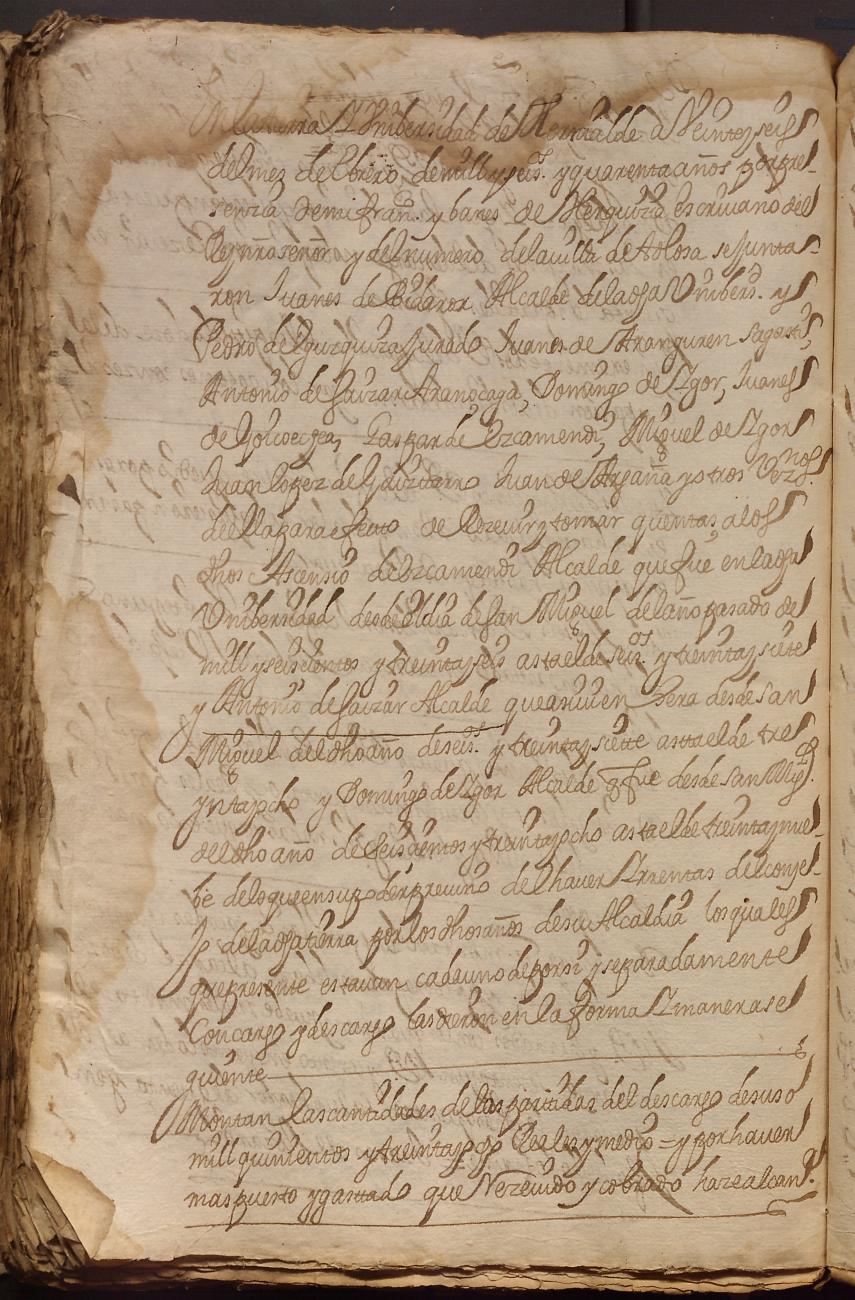 En la tierra y Unibersidad de Herrialde a Veinte y seis
del mez de Ebrero de mill y seis.s y quarenta años por pre-
senzia de mi fran.co ybanes de Herquizia escriuano del
Rey nro señor y del numero de la uilla de tolosa se junta-
ron Juanes de Bidaror Alcalde de la dha Unibers.d y
Pedro de Eguzquiza Jurado Juanes de Aranguren
Antonio de Saizar Domingo de Ygor, Juanes
de Goicoechea, Gaspar de Ezcamendi, Miguel de Ygor
Juan lopez de Juan de y otros Vez.nos
de ella para efeto de Rezeuir y tomar quentas a los
dhos Ascensio de Ezcamendi Alcalde que fue en la dha
Unibersidad desde el dia de San Miguel del año pasado de
mill y seiscientos y treinta y seis asta el de seis.os y treinta y siete
y Antonio de Saizar Alcalde que asi uien hera desde San
Miguel del dho año de seis.s y treinta y siette asta el de tre
ynta y ocho y Domingo de Ygor Alcalde q fue desde San Mig.l
del dho año de seiscientos y treinta y ocho asta el de treinta y nue-
be de lo que en su poder preuino del hauer y rrentas del conze-
jo de la dha tierra por los dhos años de su Alcaldia los quales
que presente estauan cada uno de por si y separadamente
Con cargo y descargo las dieron en la forma y manera se
guiente
Montan las cantidades de las partidas del descargo de suso
mill quinientos y treinta y ocho Reales y medio = y por hauer
mas puesto y gastado que Rezeuido y cobrado haze alcan.ze